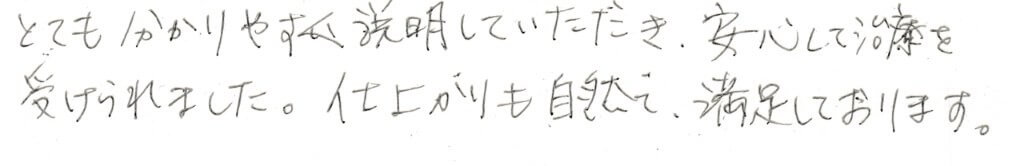 とても分かりやすく説明していただき、安心して治療を
受けられました。仕上がりも自然で、満足しております。